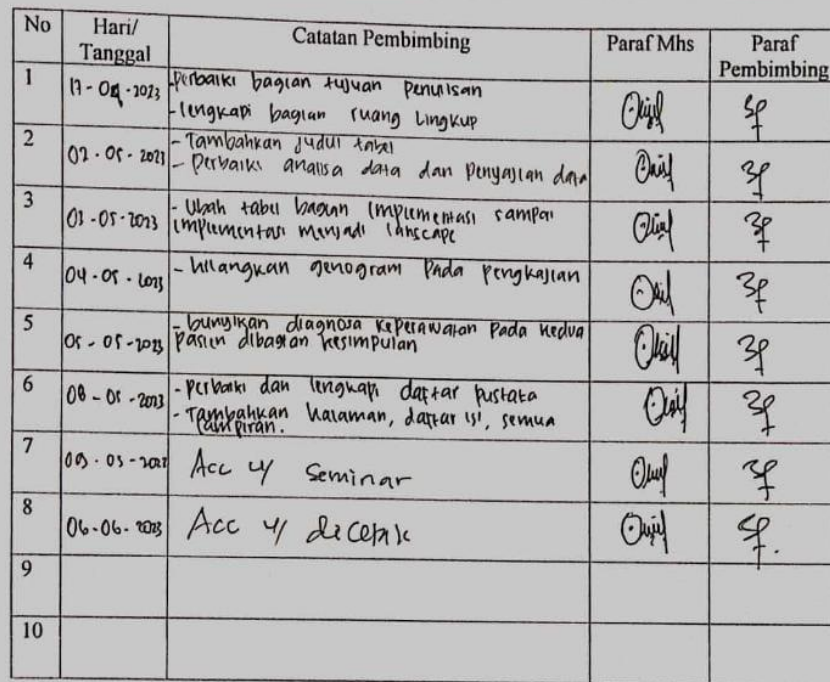 No Hari/ Tanggal Catatan Pembimbing Paraf Mhs Paraf Pembimbing
1 17-04-2023 -perbaiki bagian tujuan penulisan
-lengkapi bagian ruang lingkup
2 02-05-2023 - Tambahkan judul tabel
- Perbaiki analisa data dan penyajian data
3 03-05-2023 - Ubah tabel bagian implementasi sampai
implementasi menjadi lanscape
4 04-05-2023 - hilangkan genogram pada pengkajian
5 05-05-2023 - bunyikan diagnosa keperawatan pada kedua
pasien dibagian kesimpulan
6 08-05-2023 - perbaiki dan lengkapi daftar pustaka
- Tambahkan halaman, daftar isi, semua
lampiran.
7 09-05-2023 Acc u/ Seminar
8 06-06-2023 Acc u/ dicetak
9
10